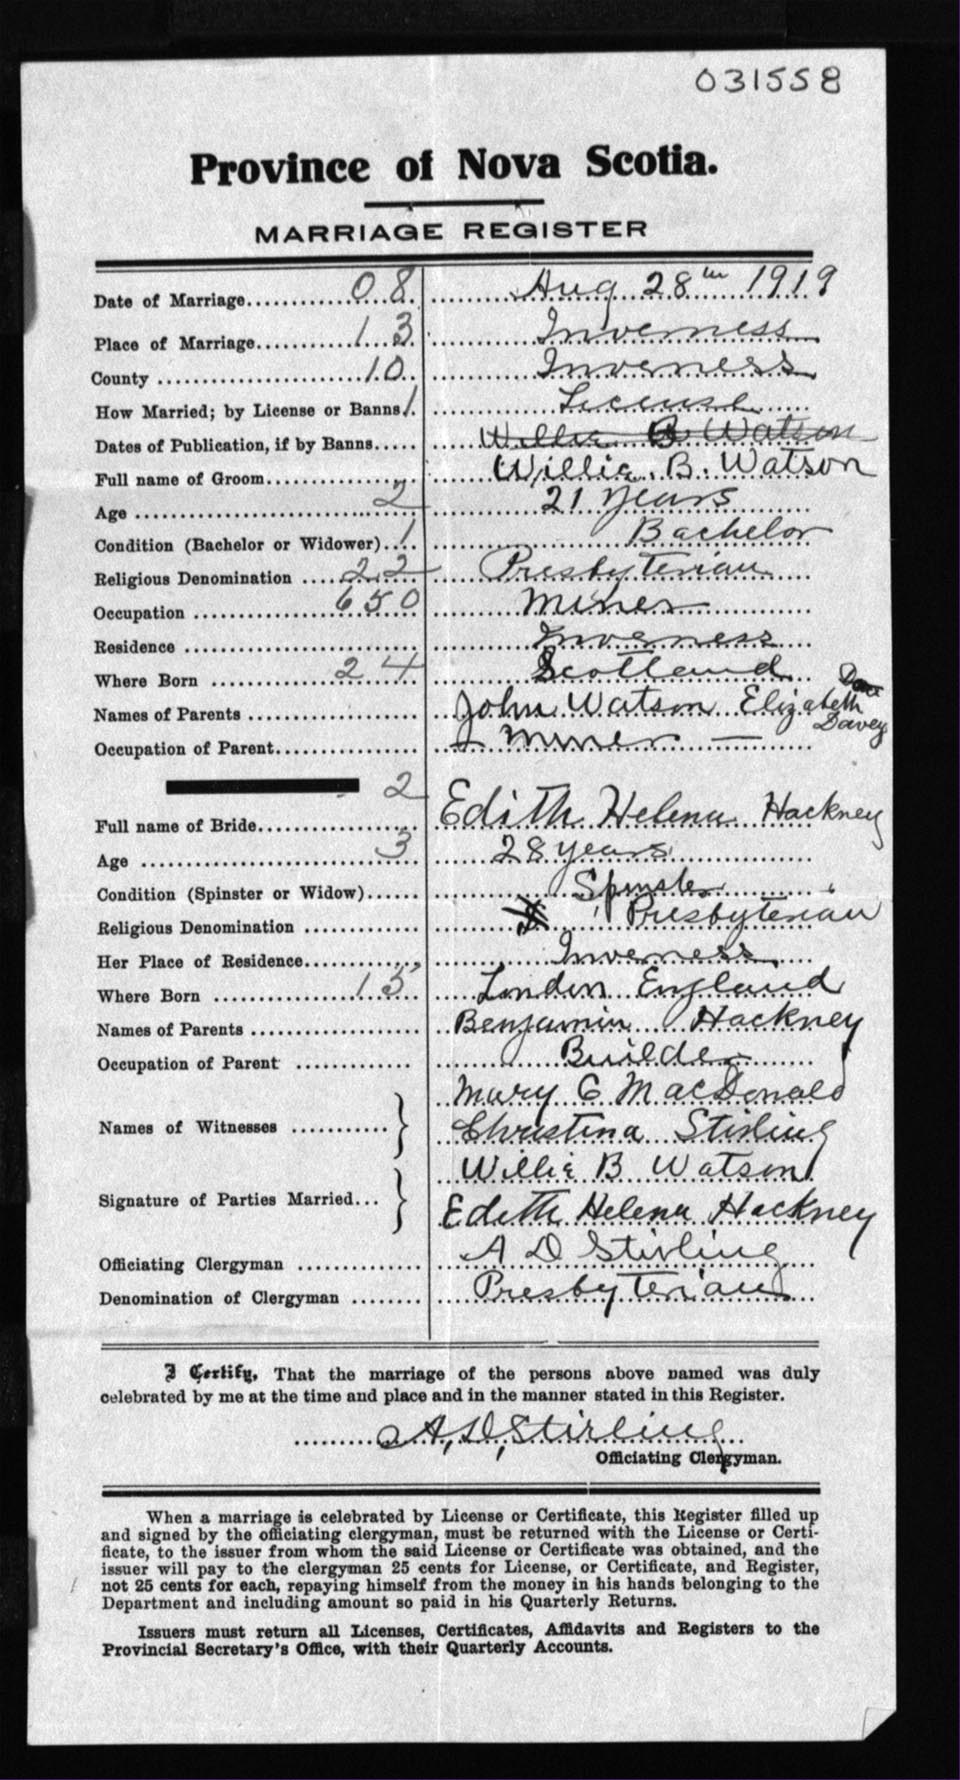 031558
Province of Nova Scotia.
MARRIAGE REGISTER
Date of Marriage 08 Aug 28th 1919
Place of Marriage 13 Inverness
County 10 Inverness
How Married; by License or Banns 1 License
Dates of Publication, if by Banns Willie B Watson
Full name of Groom Willie B. Watson
Age 2 21 years
Condition (Bachelor or Widower) 1 Bachelor
Religious Denomination 22 Presbyterian
Occupation 650 Miner
Residence Inverness
Where Born 24 Scotland
Names of Parents John Watson Elizabeth Davey
Occupation of Parent Miner —
2
Full name of Bride Edith Helena Hackney
Age 3 28 years
Condition (Spinster or Widow) Spinster
Religious Denomination Presbyterian
Her Place of Residence Inverness
Where Born 15 London England
Names of Parents Benjamin Hackney
Occupation of Parent Builder
Mary C MacDonald
Names of Witnesses Christina Stirling
Willie B Watson
Signature of Parties Married Edith Helena Hackney
Officiating Clergyman A D Stirling
Denomination of Clergyman Presbyterian
I Certify, That the marriage of the persons above named was duly
celebrated by me at the time and place and in the manner stated in this Register.
A, D, Stirling
Officiating Clergyman.
When a marriage is celebrated by License or Certificate, this Register filled up
and signed by the officiating clergyman, must be returned with the License or Certi-
ficate, to the issuer from whom the said License or Certificate was obtained, and the
issuer will pay to the clergyman 25 cents for License, or Certificate, and Register,
not 25 cents for each, repaying himself from the money in his hands belonging to the
Department and including amount so paid in his Quarterly Returns.
Issuers must return all Licenses, Certificates, Affidavits and Registers to the
Provincial Secretary's Office, with their Quarterly Accounts.